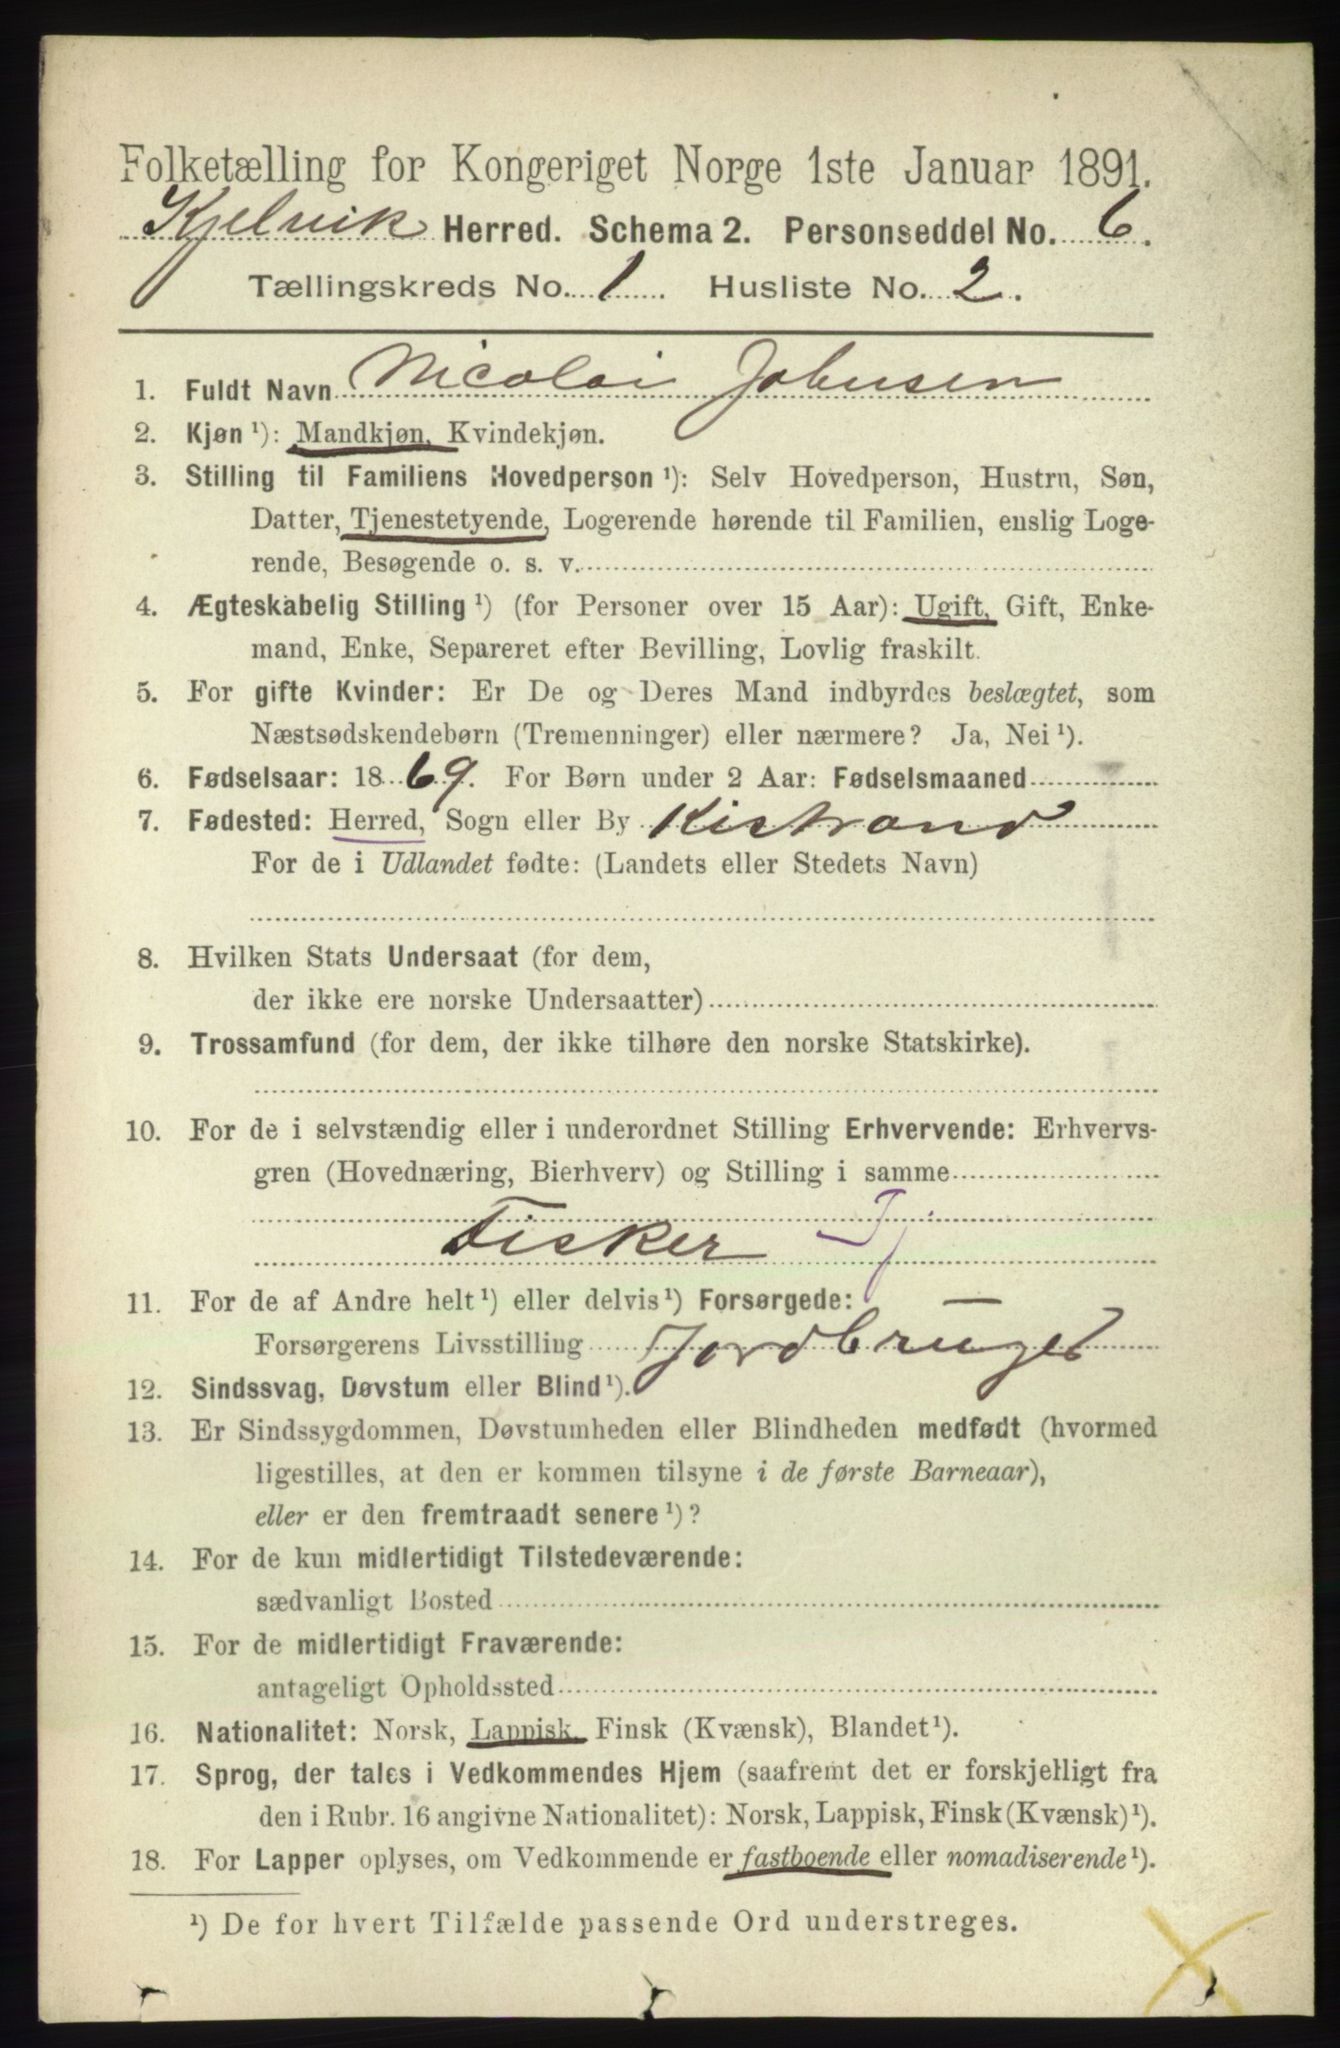 Folketælling for Kongeriget Norge 1ste Januar 1891.
Kjelvik Herred. Schema 2. Personseddel No. 6.
Tællingskreds No. 1. Husliste No. 2.
1. Fuldt Navn Nicolai Johnsen
2. Kjøn ¹): Mandkjøn, Kvindekjøn.
3. Stilling til Familiens Hovedperson ¹): Selv Hovedperson, Hustru, Søn,
Datter, Tjenestetyende, Logerende hørende til Familien, enslig Loge-
rende, Besøgende o. s. v.
4. Ægteskabelig Stilling ¹) (for Personer over 15 Aar): Ugift, Gift, Enke-
mand, Enke, Separeret efter Bevilling, Lovlig fraskilt.
5. For gifte Kvinder: Er De og Deres Mand indbyrdes beslægtet, som
Næstsødskendebørn (Tremenninger) eller nærmere? Ja, Nei ¹).
6. Fødselsaar: 1869. For Børn under 2 Aar: Fødselsmaaned
7. Fødested: Herred, Sogn eller By Kistrand
For de i Udlandet fødte: (Landets eller Stedets Navn)
8. Hvilken Stats Undersaat (for dem,
der ikke ere norske Undersaatter)
9. Trossamfund (for dem, der ikke tilhøre den norske Statskirke).
10. For de i selvstændig eller i underordnet Stilling Erhvervende: Erhvervs-
gren (Hovednæring, Bierhverv) og Stilling i samme
Fisker Tj
11. For de af Andre helt ¹) eller delvis ¹) Forsørgede:
Forsørgerens Livsstilling Jordbruger
12. Sindssvag, Døvstum eller Blind ¹).
13. Er Sindssygdommen, Døvstumheden eller Blindheden medfødt (hvormed
ligestilles, at den er kommen tilsyne i de første Barneaar),
eller er den fremtraadt senere ¹)?
14. For de kun midlertidigt Tilstedeværende:
sædvanligt Bosted
15. For de midlertidigt Fraværende:
antageligt Opholdssted
16. Nationalitet: Norsk, Lappisk, Finsk (Kvænsk), Blandet ¹).
17. Sprog, der tales i Vedkommendes Hjem (saafremt det er forskjelligt fra
den i Rubr. 16 angivne Nationalitet): Norsk, Lappisk, Finsk (Kvænsk) ¹).
18. For Lapper oplyses, om Vedkommende er fastboende eller nomadiserende ¹).
¹) De for hvert Tilfælde passende Ord understreges.